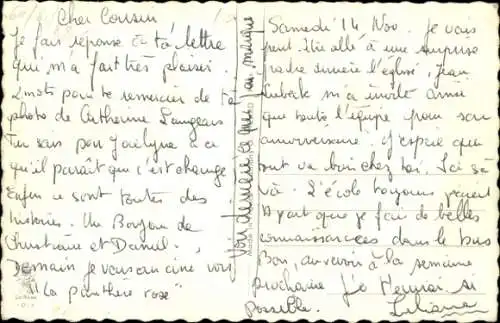 Cher Cousin
Je fais réponse à ta lettre
qui m'a fait très plaisir.
2 mots pour te remercier de ta
photo de Catherine Langeais
Tu sais pour Jocelyne à ce
qu'il paraît que c'est changé
Enfin ce sont toutes des
histoires. Un Bonjour de
Christiane et Daniel.
Demain je vais au ciné voir
"La panthère rose"
Samedi 14 Nov. Je vais
peut être allé à une surprise
partie derrière l'église, Jean
m'a invité ainsi
que toute l'équipe pour son
anniversaire. J'espère que
tout va bien chez toi. Ici ça
va. L'école toujours pareil
à part que je fais de belles
connaissances dans le bus
Bon, au revoir à la semaine
prochaine si
possible. Liliane